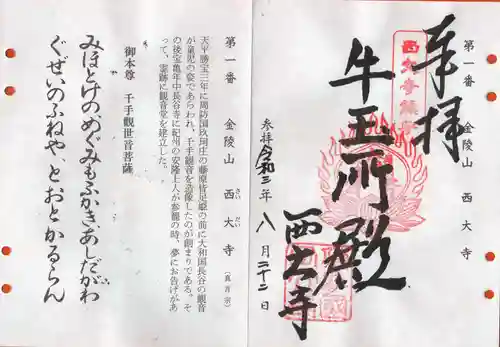 第一番 金陵山 西大寺
奉拝
牛玉所殿
西大寺
参拝 令和三年 八月二十二日
第一番 金陵山 西大寺(真言宗)
さいだいじ
天平勝宝三年に周防国玖珂庄の藤原皆足姫の前に大和国長谷の観音
が童児の姿であらわれ、千手観音を造像したのが創まりである。そ
の後宝亀年中長谷寺に紀州の安隆上人が参籠の時、夢にお告げがあ
って、霊跡に観音堂を建立した。
御本尊 千手観世音菩薩
みほとけの、めぐみもふかき、あしだがわ
ぐぜいのふねや、とおとかるらん